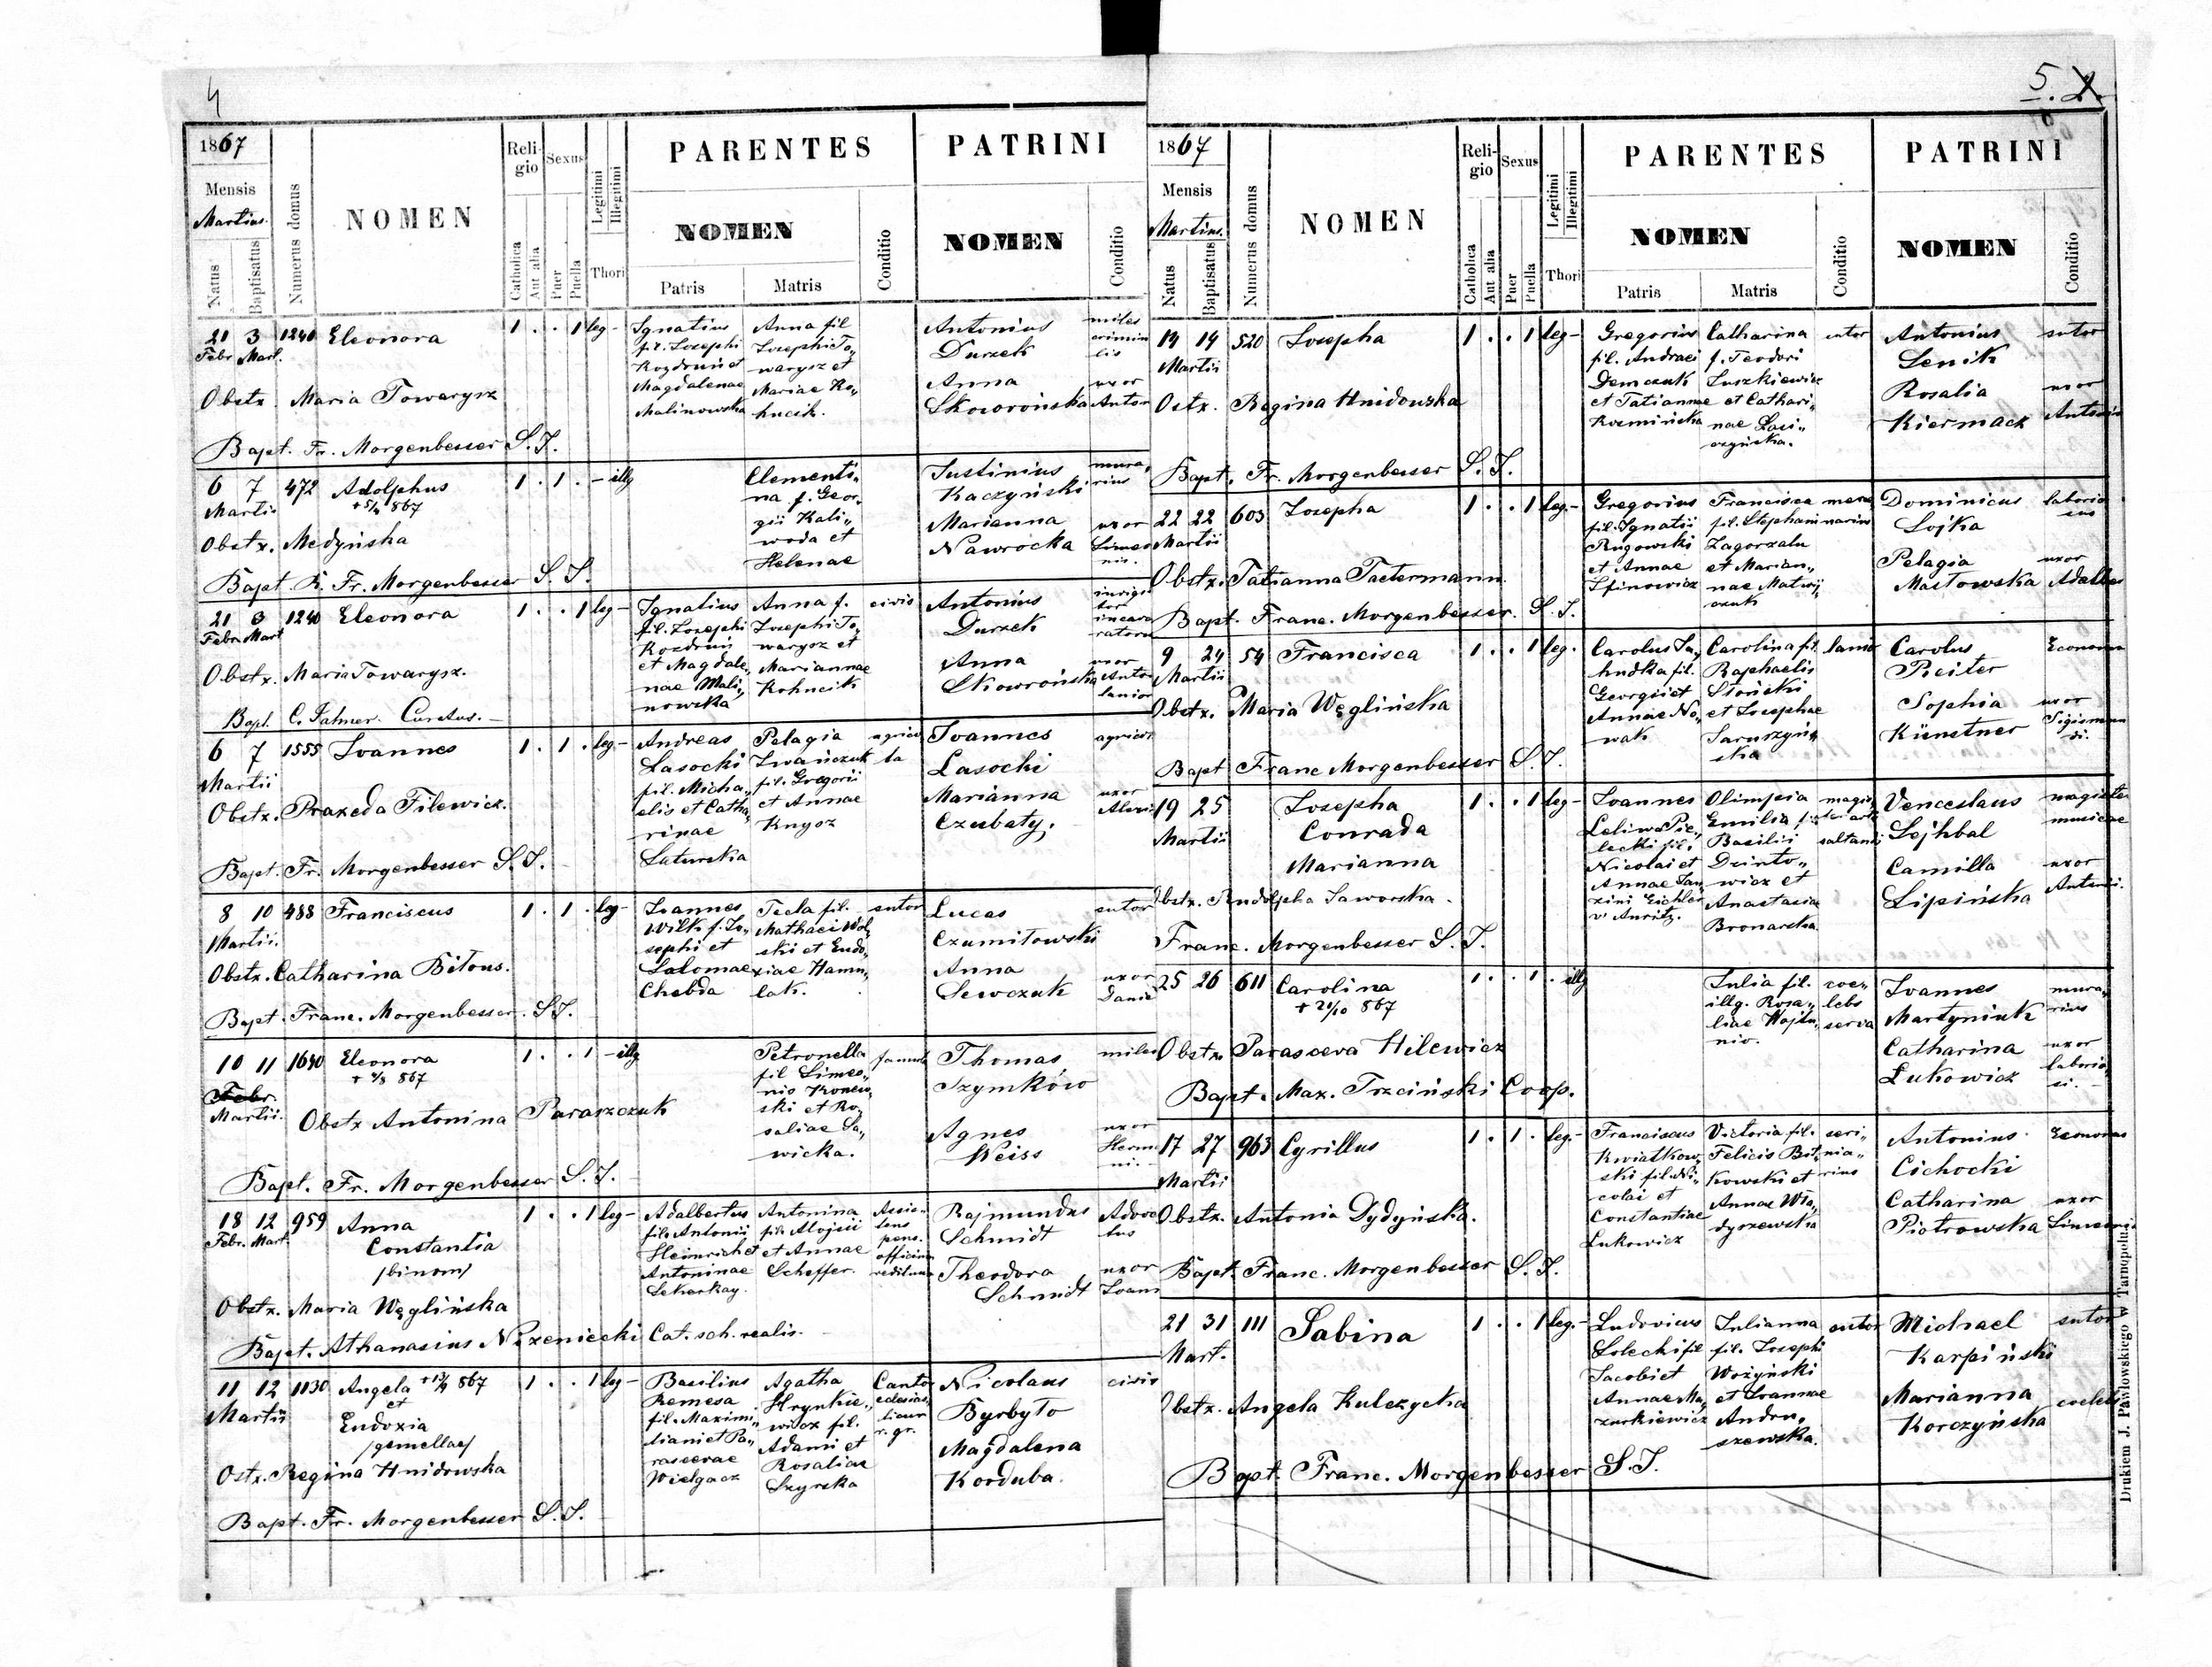 4
1867
Mensis
Martius.
Natus
Baptisatus
Numerus domus
NOMEN
Religio
Catholica
Aut alia
Sexus
Puer
Puella
Legitimi
Illegitimi
Thori
PARENTES
NOMEN
Patris
Matris
Conditio
PATRINI
NOMEN
Conditio
21 3 1240 Eleonora 1 . . 1 leg-
Febr. Mart.
Obstx. Maria Towarysz
Bapt. Fr. Morgenbesser S.J.
Ignatius
fil. Josephi
Rozdruń et
Magdalenae
Malinowska
Anna fil
Josephi To„
warysz et
Mariae Ko„
hucik.
Antonius
Durzek
Anna
Skowrońska
miles
crimin
lis
uxor
Anton
6 7 472 Adolphus 1 . 1 . - illg
Martii + 5/4 867
Obstx. Medyńska
Bapt. K. Fr. Morgenbesser S.J.
Clementi„
na f. Geor„
gii Kali„
woda et
Helenae
Justinius
Kaczyński
Marianna
Nawrocka
mura„
rius
uxor
Simeo
nis.
21 3 1240 Eleonora 1 . . 1 leg-
Febr. Mart
Obstx. Maria Towarysz.
Bapt. C. Falmer. Curatus.
Ignatius
fil. Josephi
Rozdruń
et Magdale„
nae Mali„
nowska
Anna f.
Josephi To„
warysz et
Mariannae
Kohucik
civis
Antonius
Durzek
Anna
Skowrońska
uxor
Anto
lanior
6 7 1555 Joannes 1 . 1 . leg-
Martii
Obstx. Praxeda Filewicz.
Bapt. Fr. Morgenbesser S.J.
Andreas
Lasocki
fil. Micha„
elis et Catha„
rinae
Saturska
Pelagia
Iwańczuk
fil. Gregorii
et Annae
Knysz
agrico
la
Joannes
Lasocki
Marianna
Czubaty.
agrico
uxor
8 10 488 Franciscus 1 . 1 . leg-
Martii.
Obstx. Catharina Bitous.
Bapt. Franc. Morgenbesser. S.J.
Joannes
Wilk f. Jo„
sephi et
Salomae
Chebda
Tecla fil.
Mathaei Wol„
ski et Eudo„
xiae Hamu„
lak.
sutor
Lucas
Czumitowski
Anna
Sewczuk
sutor
uxor
Danie
10 11 1640 Eleonora 1 . . 1 - illg
Febr.
Martii. 867
Obstx Antonina Paraszczuk
Bapt. Fr. Morgenbesser S.J.
Petronella
fil Simeo„
nis Konew„
ski et Ro„
saliae Sa„
wicka.
famula
Thomas
Szymków
Agnes
Weiss
miles
uxor
Herma
ni.
18 12 959 Anna 1 . . 1 leg-
Febr. Mart. Constantia
/binom/
Obstx. Maria Węglińska
Bapt. Athanasius Nizeniecki Cat. sch. realis.
Adalbertus
fil. Antonii
Heinrich et
Antoninae
Lekarkay.
Antonina
fil. Alojsii
et Annae
Scheffer.
Assis„
tens
pens.
officii
redituum
Rajmundus
Schmidt
Theodora
Schmidt
Advoc
tus
uxor
Joann
11 12 1130 Angela + 13/4 867 1 . . 1 leg-
Martii et
Eudoxia
/gemellae/
Ostx. Regina Hnidowska
Bapt. Fr. Morgenbesser S.J.
Basilius
Remesa
fil. Maximi„
liani et Pa„
rascevae
Wielgacz
Agatha
Hrynkie„
wicz fil.
Adami et
Rosaliae
Szyrska
Cantor
eclesias„
ticus
r. gr.
Nicolaus
Byrbyto
Magdalena
Korduba.
civis
5. 2.
1867
Mensis
Martius.
Natus
Baptisatus
Numerus domus
NOMEN
Religio
Catholica
Aut alia
Sexus
Puer
Puella
Legitimi
Illegitimi
Thori
PARENTES
NOMEN
Patris
Matris
Conditio
PATRINI
NOMEN
Conditio
14 14 520 Josepha 1 . . 1 leg-
Martii
Ostx. Regina Hnidowska
Bapt. Fr. Morgenbesser S.J.
Gregorius
fil. Andraei
Demczuk
et Tatiannae
Kozmińska
Catharina
f. Teodori
Luszkiewicz
et Cathari„
nae Lasi„
czyńska.
sutor
Antonius
Senik
Rosalia
Kiermacz
sutor
uxor
Antonii
22 22 603 Josepha 1 . . 1 leg.-
Martii
Obstx. Tatianna Tactermann
Bapt. Franc. Morgenbesser. S.J.
Gregorius
fil. Ignatii
Rugowski
et Annae
Spinowicz
Francisca
fil. Stephani
Zagorzalu
et Marian„
nae Matwij
czuk
mura
narius
Dominicus
Sojka
Pelagia
Mastowska
laborio
sus
uxor
Adalber
9 24 54 Francisca 1 . . 1 leg.
Martii
Obstx. Maria Węglińska
Bapt Franc Morgenbesser S.J.
Carolus Ja„
hudka fil.
Georgii et
Annae No„
wak
Carolina fil.
Raphaelis
Słoński
et Josephae
Jaruszyń„
ska
lanio
Carolus
Reiter
Sophia
Künstner
Econom
uxor
Sigismun
di.
19 25 Josepha 1 . . 1 leg-
Martii Conrada
Marianna
Obstx. Rudolpha Jaworska.
Franc. Morgenbesser S.J.
Joannes
Leliwa Pie„
lecki fil.
Nicolai et
Annae
Olimpia
Emilia fil.
Basilii
Dzinto„
wicz et
Anastasia
Bronarska.
magis
saltandi
Venceslaus
Lejhbal
Camilla
Lipińska
magiste
musicae
uxor
Antonii.
25 26 611 Carolina 1 . . 1 . illg
+ 21/10 867
Obstx. Parasceva Hilewicz
Bapt. Max. Trzciński Coop.
Julia fil.
illg. Rosa„
liae Wojtu„
nio.
coe„
lebs
serva
Joannes
Martyniuk
Catharina
Lukowicz
mura„
rius
uxor
laborio„
si.
17 27 963 Cyrillus 1 . 1 . leg.-
Martii
Obstx. Antonia Dydyńska.
Bapt. Franc. Morgenbesser S.J.
Franciscus
Kwiatkow„
ski fil. Ni„
colai et
Constantiae
Lukowicz
Victoria fil.
Felicis Bit„
kowski et
Annae Wła„
dyszewska
scri„
nia„
rius
Antonius
Cichocki
Catharina
Piotrowska
Economus
uxor
Simeonis
21 31 111 Sabina 1 . . 1 leg.-
Mart.
Obstx. Angela Kulczycka
Bapt. Franc. Morgenbesser S.J.
Ludovicus
Solecki fil
Jacobi et
Annae Ma„
zurkiewicz
Julianna
fil. Josephi
Wożyński
et Joannae
Andru„
szewska.
sutor
Michael
Karpiński
Marianna
Korczyńska
sutor
coeleb
Drukiem J. Pawłowskiego w Tarnopolu.